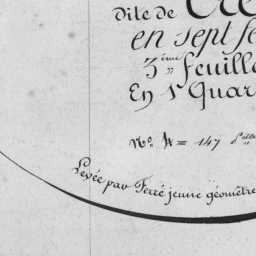 dite de Cre
en sept fe
3ème feuille
En 1r Quar
No. 4 = 147
Levée par Ferré jeune géomètre